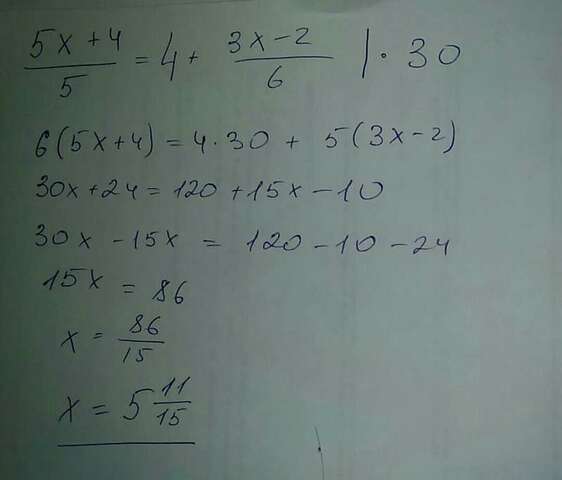 (5x+4)/5 = 4 + (3x-2)/6 | · 30
6(5x+4) = 4·30 + 5(3x-2)
30x+24 = 120+15x-10
30x-15x = 120-10-24
15x = 86
x = 86/15
x = 5 11/15